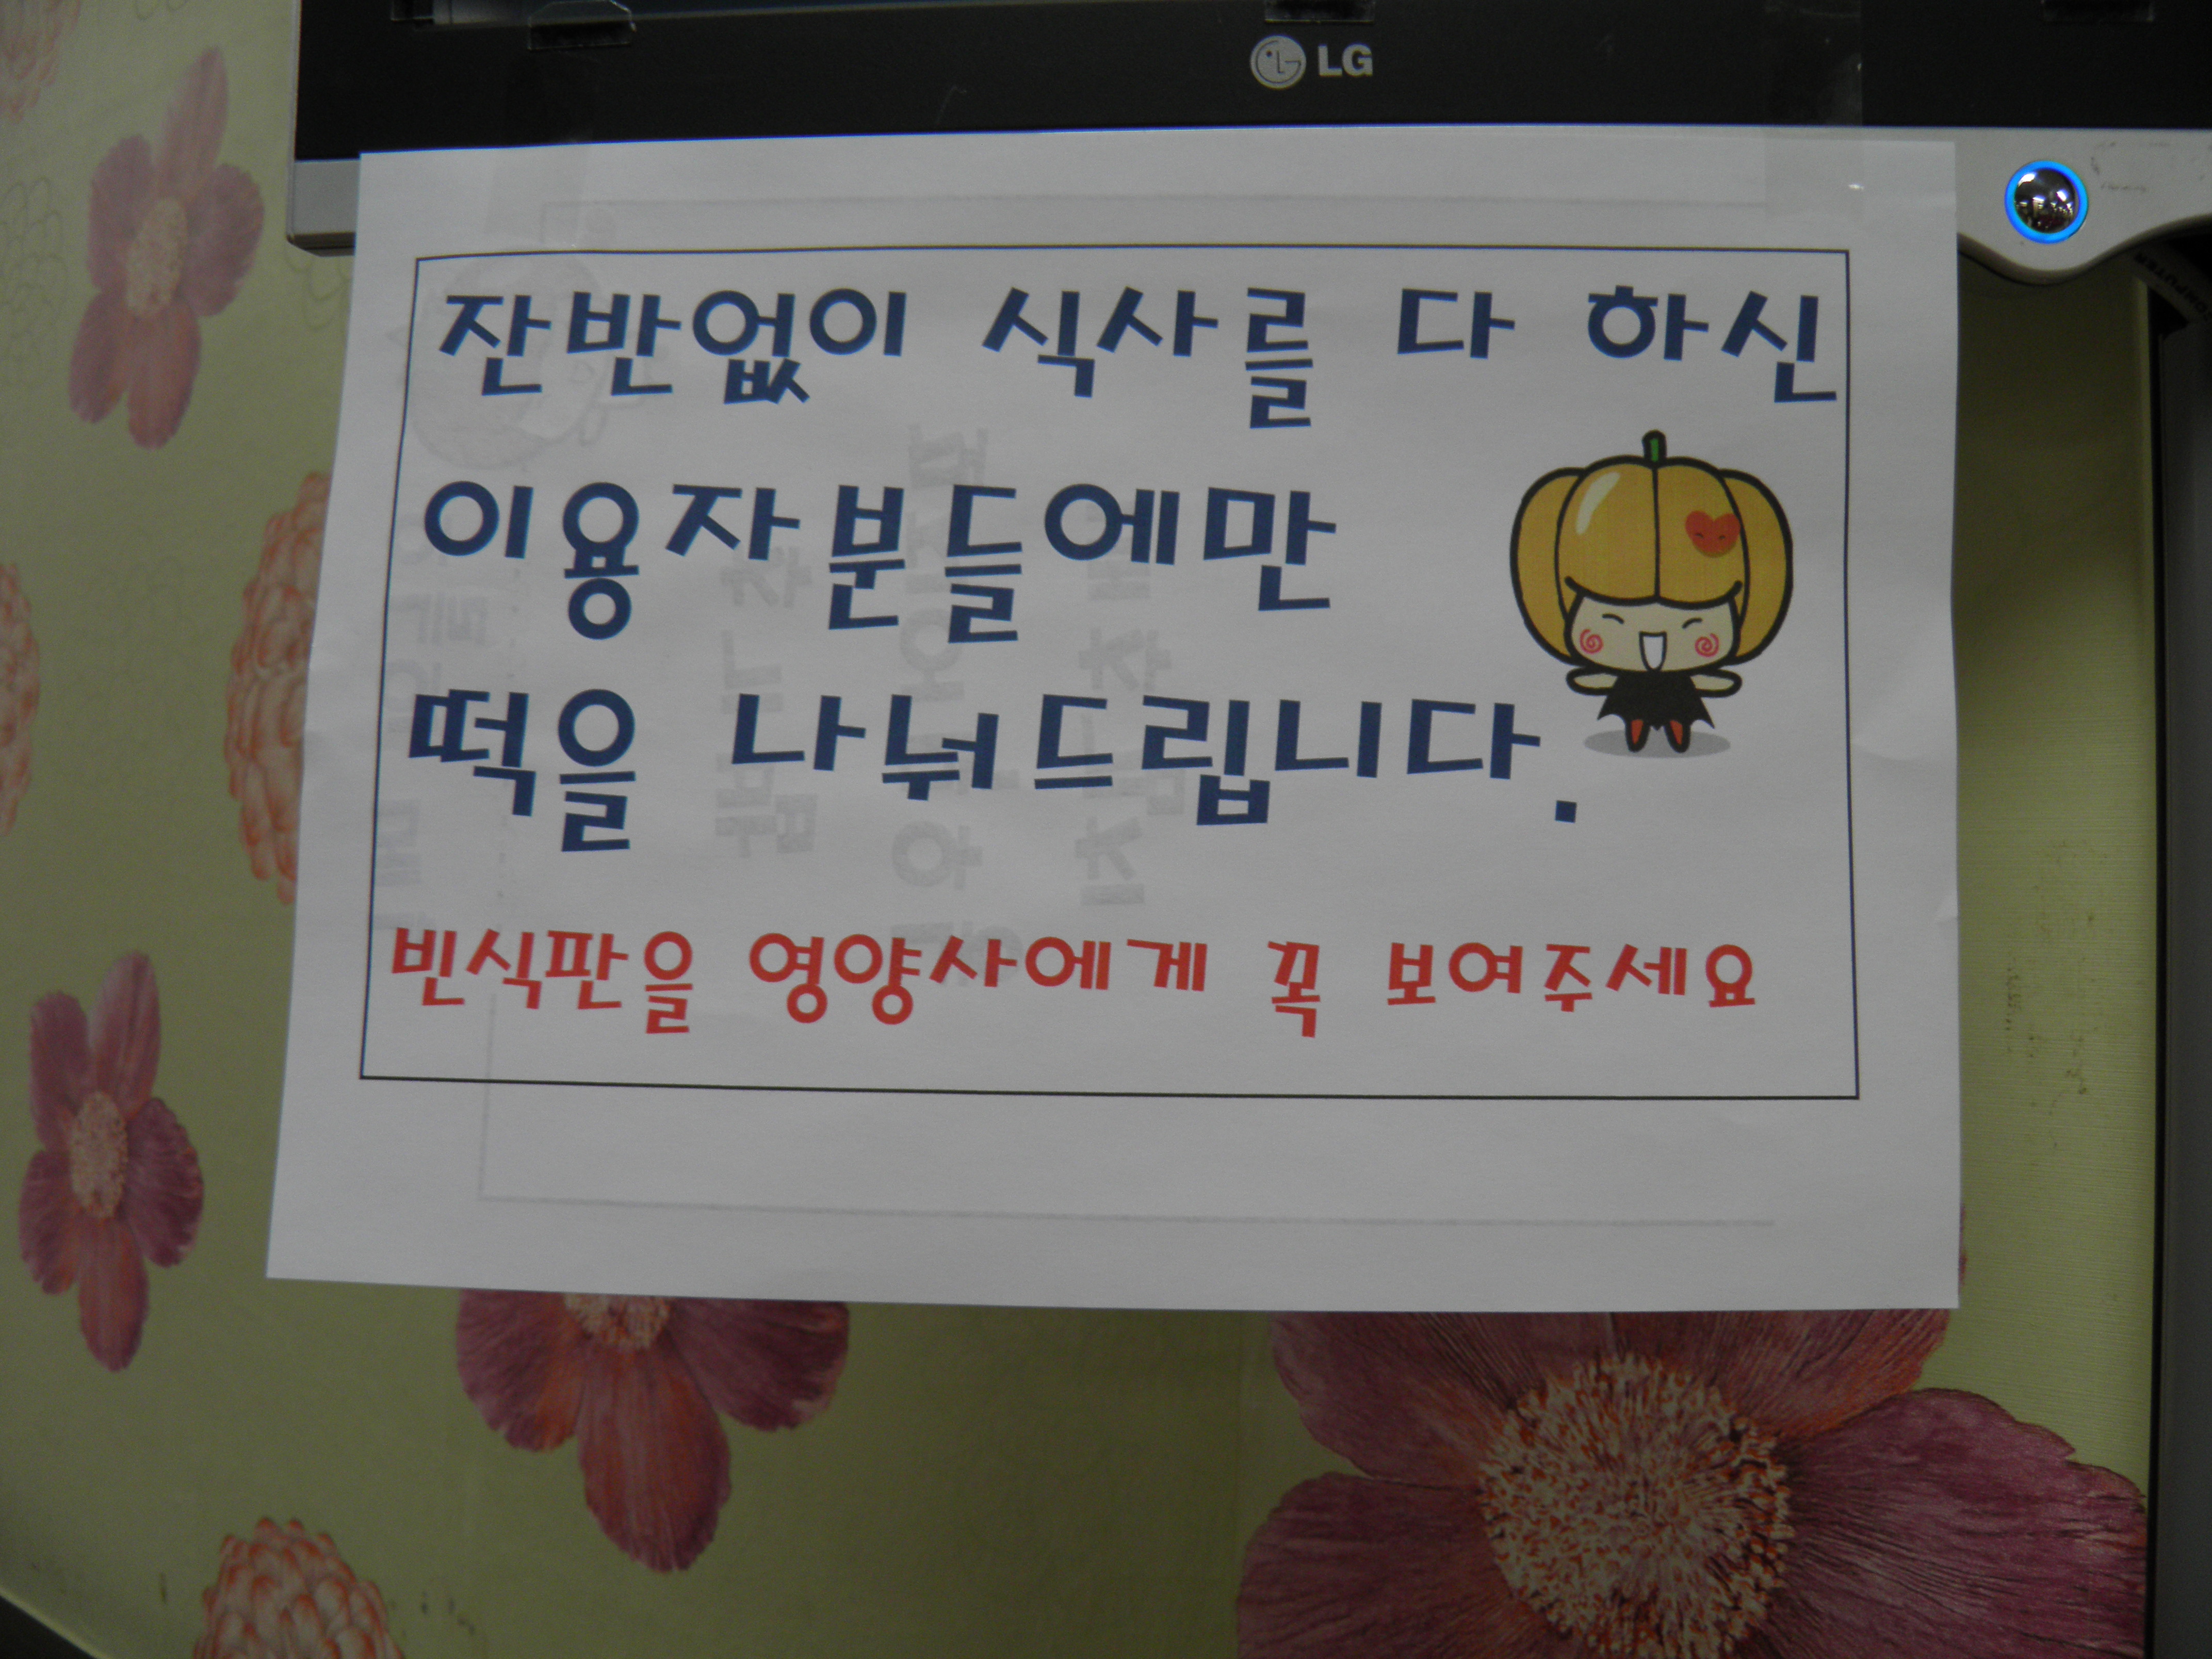 LG
잔반없이 식사를 다 하신
이용자분들에만
떡을 나눠드립니다.
빈식판을 영양사에게 꼭 보여주세요